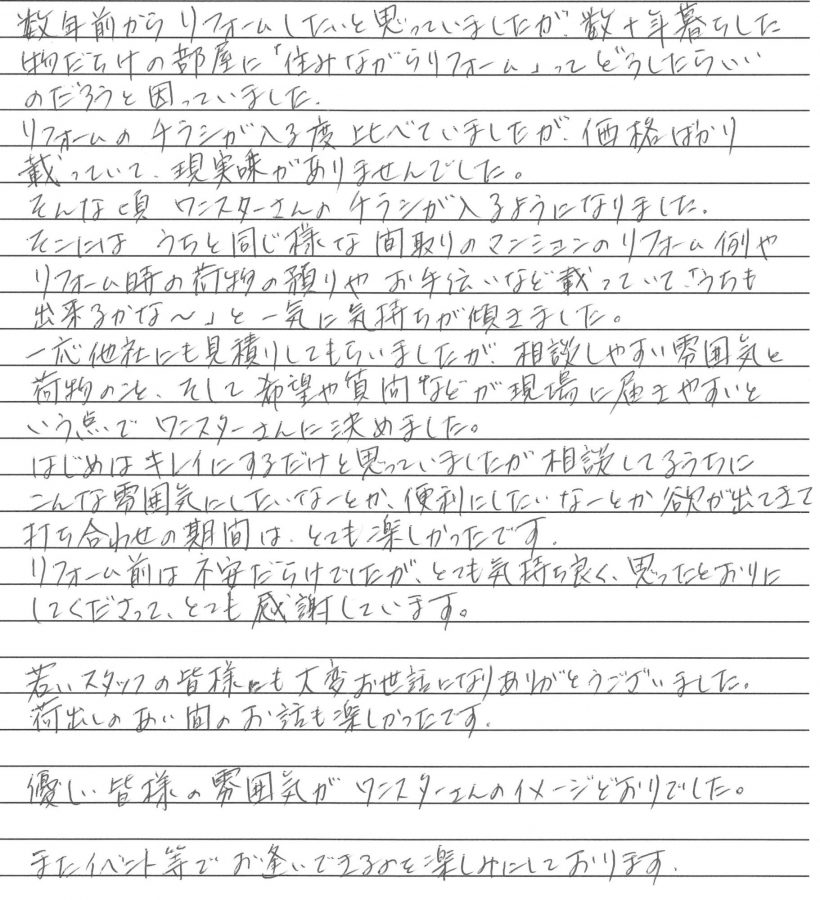 数年前からリフォームしたいと思っていましたが、数十年暮らした
物だらけの部屋に「住みながらリフォーム」ってどうしたらいい
のだろうと困っていました。
リフォームのチラシが入る度比べていましたが、価格ばかり
載っていて、現実味がありませんでした。
そんな頃ワンスターさんのチラシが入るようになりました。
そこには うちと同じ様な間取りのマンションのリフォーム例や
リフォーム時の荷物の預りや お手伝いなど載っていて「うちも
出来るかな〜」と一気に気持ちが傾きました。
一応他社にも見積りしてもらいましたが、相談しやすい雰囲気と
荷物のこと、そして希望や質問などが現場に届きやすいと
いう点でワンスターさんに決めました。
はじめはキレイにするだけと思っていましたが相談してるうちに
こんな雰囲気にしたいなーとか、便利にしたいなーとか欲が出てきて
打ち合わせの期間は、とても楽しかったです。
リフォーム前は不安だらけでしたが、とても気持ち良く、思ったとおりに
してくださって、とても感謝しています。
若いスタッフの皆様にも大変お世話になりありがとうございました。
荷出しのあい間のお話も楽しかったです。
優しい皆様の雰囲気がワンスターさんのイメージどおりでした。
またイベント等でお逢いできるのを楽しみにしております。